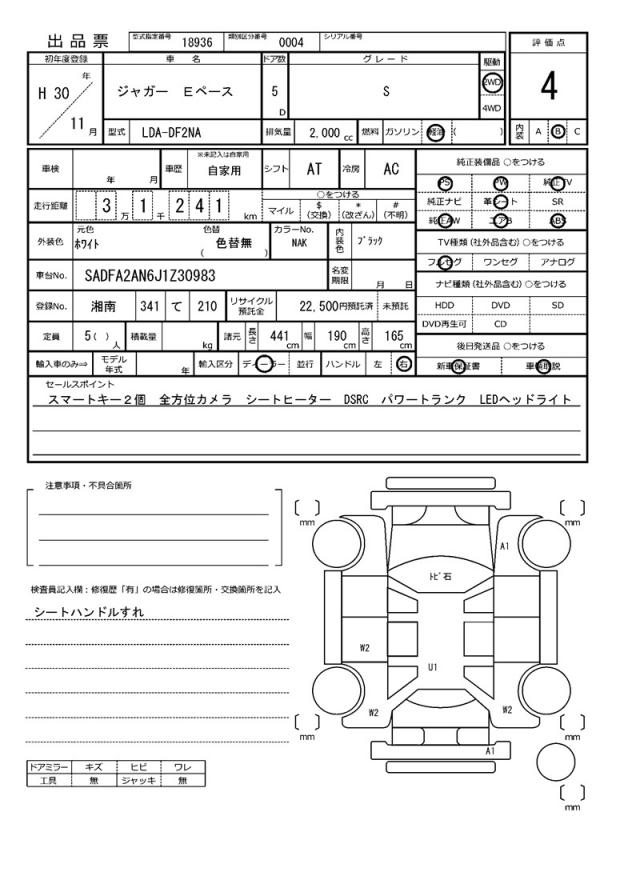 出品票 型式指定番号 18936 類別区分番号 0004 シリアル番号
評価点
4
内装 A B C
初年度登録 車名 ドア数 グレード 駆動
H 30 年 11 月 ジャガー Eペース 5 D S 2WD 4WD
型式 LDA-DF2NA 排気量 2,000 cc 燃料 ガソリン 軽油 ( )
車検 年 月 車歴 ※未記入は自家用 自家用 シフト AT 冷房 AC
走行距離 3 万 1 千 2 4 1 km ○をつける マイル $ (交換) * (改ざん) # (不明)
外装色 元色 ホワイト 色替 ( 色替無 ) カラーNo. NAK 内装色 ブラック
車台No. SADFA2AN6J1Z30983 名変期限 月 日
登録No. 湘南 341 て 210 リサイクル預託金 22,500円預託済 未預託
定員 5( ) 人 積載量 kg 諸元 長さ 441 cm 幅 190 cm 高さ 165 cm
輸入車のみ⇒ モデル年式 年 輸入区分 ディーラー 並行 ハンドル 左 右
純正装備品 ○をつける
PS PW 純正TV
純正ナビ 革シート SR
純正AW エアB ABS
TV種類 (社外品含む) ○をつける
フルセグ ワンセグ アナログ
ナビ種類 (社外品含む) ○をつける
HDD DVD SD
DVD再生可 CD
後日発送品 ○をつける
新車保証書 車輌取説
セールスポイント
スマートキー2個 全方位カメラ シートヒーター DSRC パワートランク LEDヘッドライト
注意事項・不具合箇所
検査員記入欄：修復歴「有」の場合は修復箇所・交換箇所を記入
シートハンドルすれ
ドアミラー キズ ヒビ ワレ
工具 無 ジャッキ 無
〔 〕 mm 〔 〕 mm
A1
トビ石
W2
U1
W2 W2
〔 〕 mm 〔 〕 mm
A1
〔 〕 mm